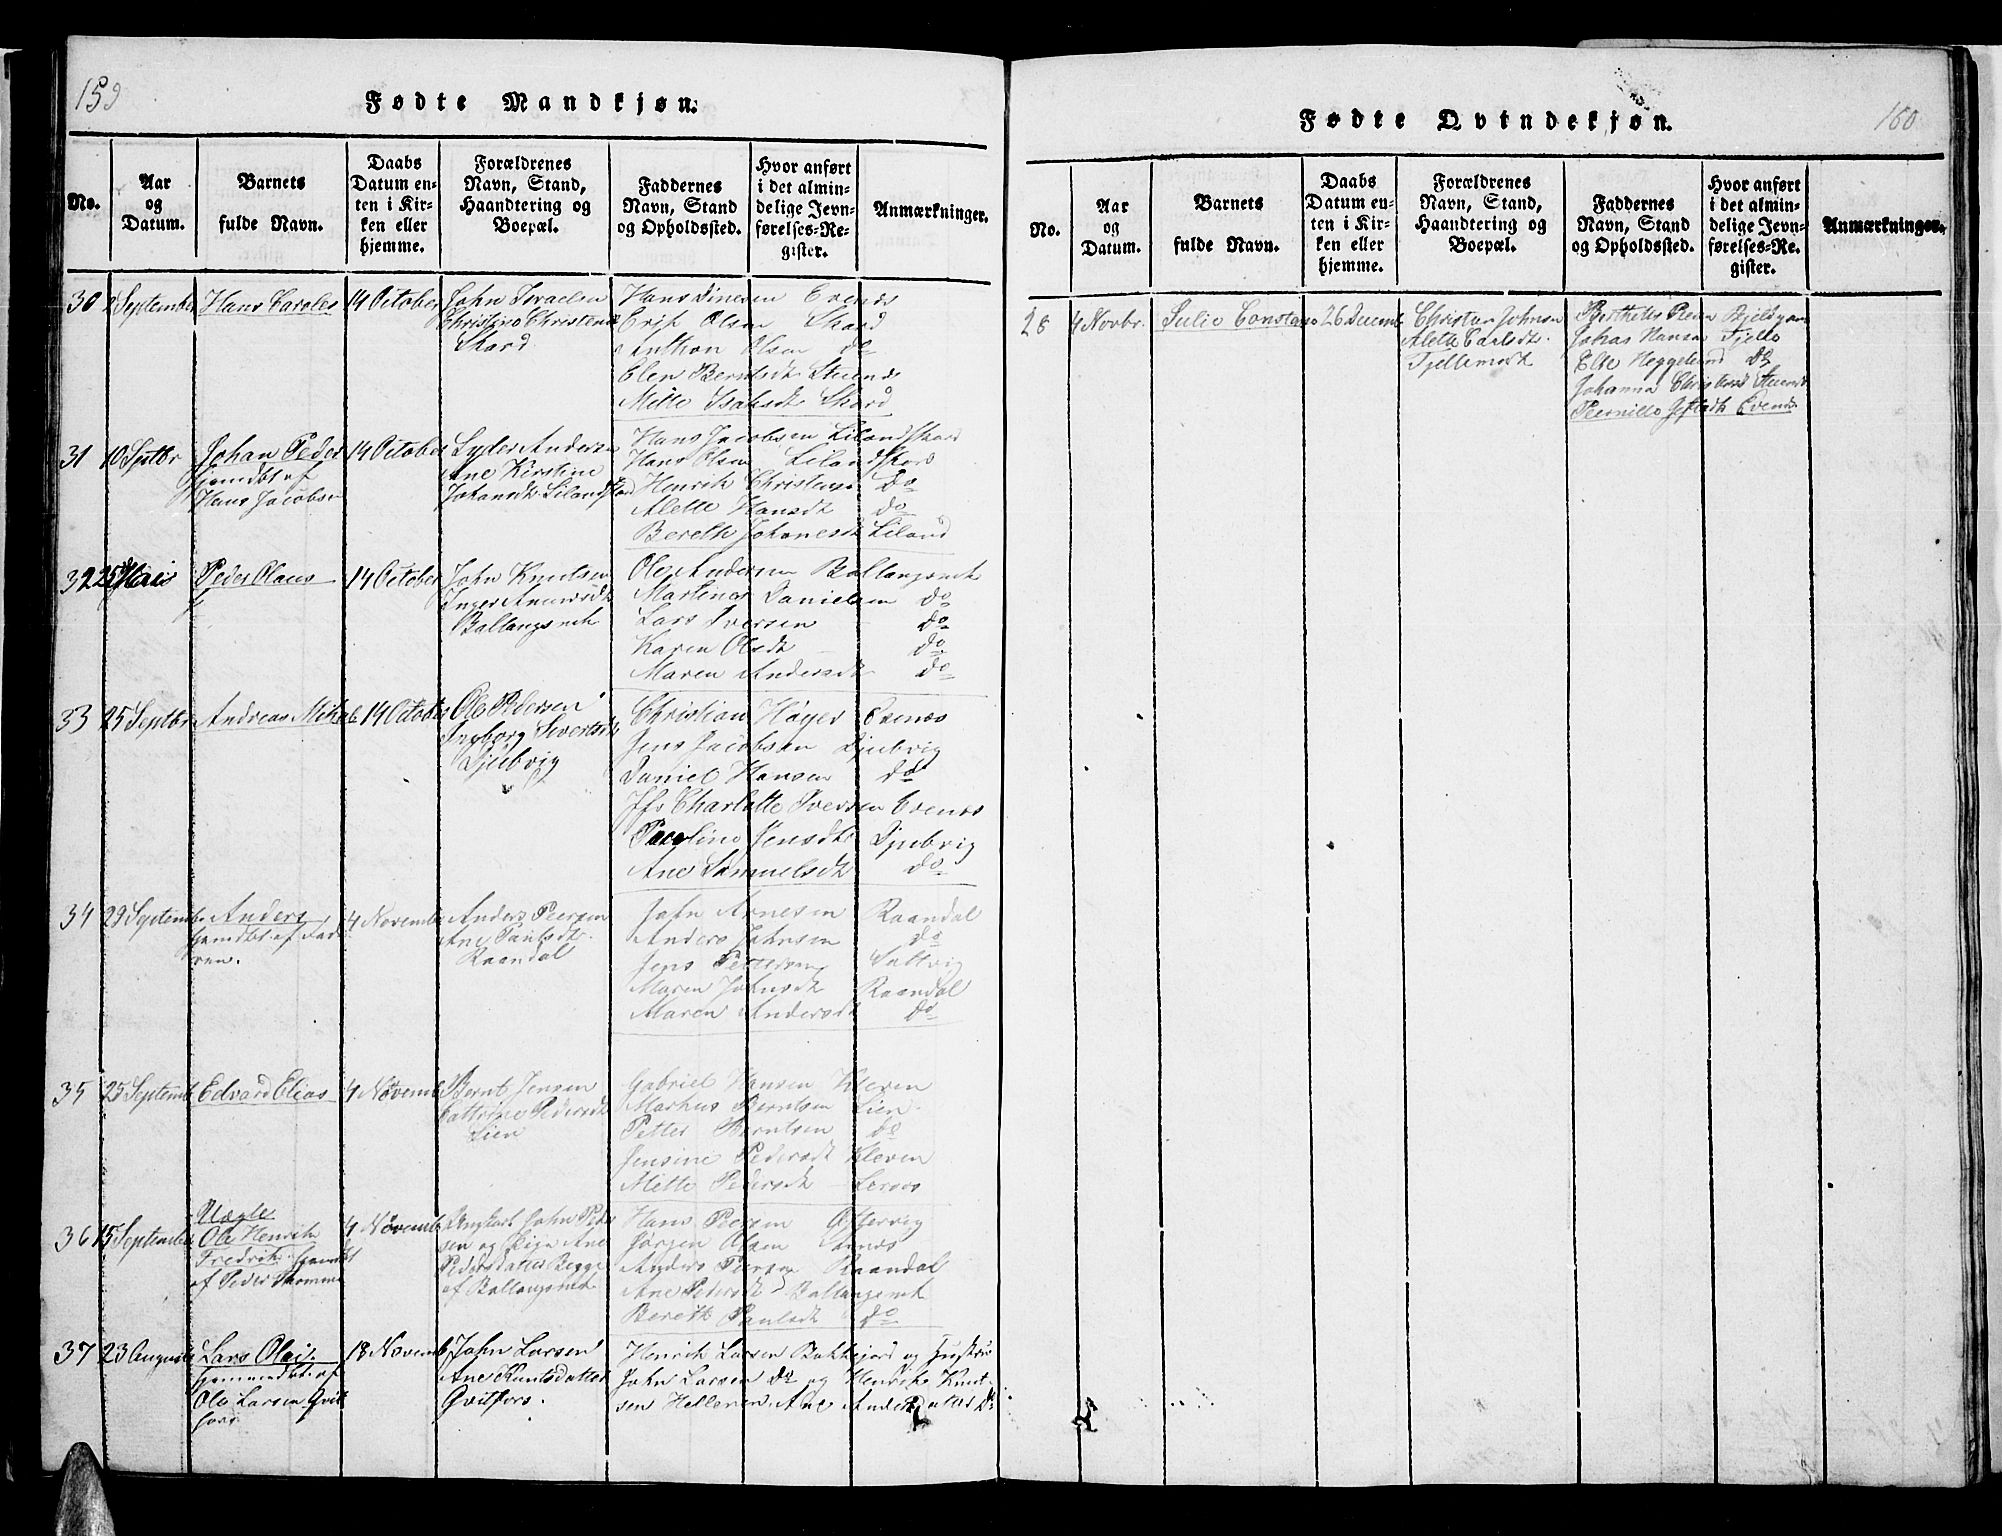 159
Fødte Mandkjøn.
No.
Aar
og
Datum.
Barnets
fulde Navn.
Daabs
Datum en-
ten i Kir-
ken eller
hjemme.
Forældrenes
Navn, Stand,
Haandtering og
Boepæl.
Faddernes
Navn, Stand
og Opholdssted.
Hvor anført
i det almin-
delige Jevn-
førelses-Re-
gister.
Anmærkninger.
30
2 September
Hans Caroles
14 October
John Israelsen
Christina Christensd
Skard
Hans Dinesen Evenæs
Erik Olsen Skard
Anthon Olsen do
Elen Berntsdt
Mitte Isaksdt Skard
31
10 Septbr
Johan Peder
hjemdbt af
Hans Jacobsen
14 October
Lyder Andersen
Ane Kirstine
Johansdt Lilandskard
Hans Jacobsen Lilandskard
Hans Olsen Lilandskard
Henrik Christensen Do
Alette Hansdt do
Bereth Johanesdt Liland
32
25 Mais
Peder Olaus
14 October
John Knutsen
Inger
Ballangsmk
Ole Andersen Ballangsmk
Martinus Danielsen do
Lars Iversen do
Karen Olsdt do
Maren Andersdt do
33
25 Septbr
Andreas Mikal
14 October
Ole Pedersen
Ingeborg Sivertsdt
Djubvig
Christian Høyer Evenæs
Jens Jacobsen Djubvig
Daniel Hansen do
Jfr Charlotte Iversen Evenæs
Paoline Jensdt Djubvig
Ane Samuelsdt do
34
29 Septemb
Anders
hjemdbt af Fad-
ren.
4 Novemb
Anders Peersen
Ane Paulsdt
Raandal
John Arnesen Raandal
Anders Johnsen do
Jens Pettersen Sattvig
Maren Johnsdt Raandal
Maren Andersdt Do
35
25 Septemb
Edvard Elias
4 Novemb
Bernt Jensen
Cathrine Pedersdt
Lien
Gabriel Hansen Kleven
Markus Berntsen Lien
Petter Berntsen do
Jensine Pedersdt Kleven
Mette Pedersdt
36
15 September
Uægte
Ole Henrik
Fredrik hjemdbt
af Peder Thomme
4 Novemb
Ungkarl John Peder
sen og Pige Ane
Pedersdatter Begge
af Ballangsmk
Hans Peersen
Jørgen Olsen
Anders Peersen Raandal
Ane Pedersdt Ballangsmk
Bereth Paulsdt do
37
23 August
Lars Olai
hjemmedbt af
Ole Larsen Qvit
fors
18 Novemb
John Larsen
Ane Knutsdatter
Qvitfors.
Henrik Larsen Bakkejord og Hustrue
John Larsen do og Henrik Knut-
sen Helleren Ane Andersdatter Do
160
Fødte Qvindekjøn.
No.
Aar
og
Datum.
Barnets
fulde Navn.
Daabs
Datum en-
ten i Kir-
ken eller
hjemme.
Forældrenes
Navn, Stand,
Haandtering og
Boepæl.
Faddernes
Navn, Stand
og Opholdssted.
Hvor anført
i det almin-
delige Jevn-
førelses-Re-
gister.
Anmærkninger.
28
4 Novbr.
Julie Constans
26 Decemb
Christen Johnsen
Alette Carlsdt
Fjellemark
Johas Hansen Fjello
Else Heggelund Do
Johanna
Pernille Evenæs